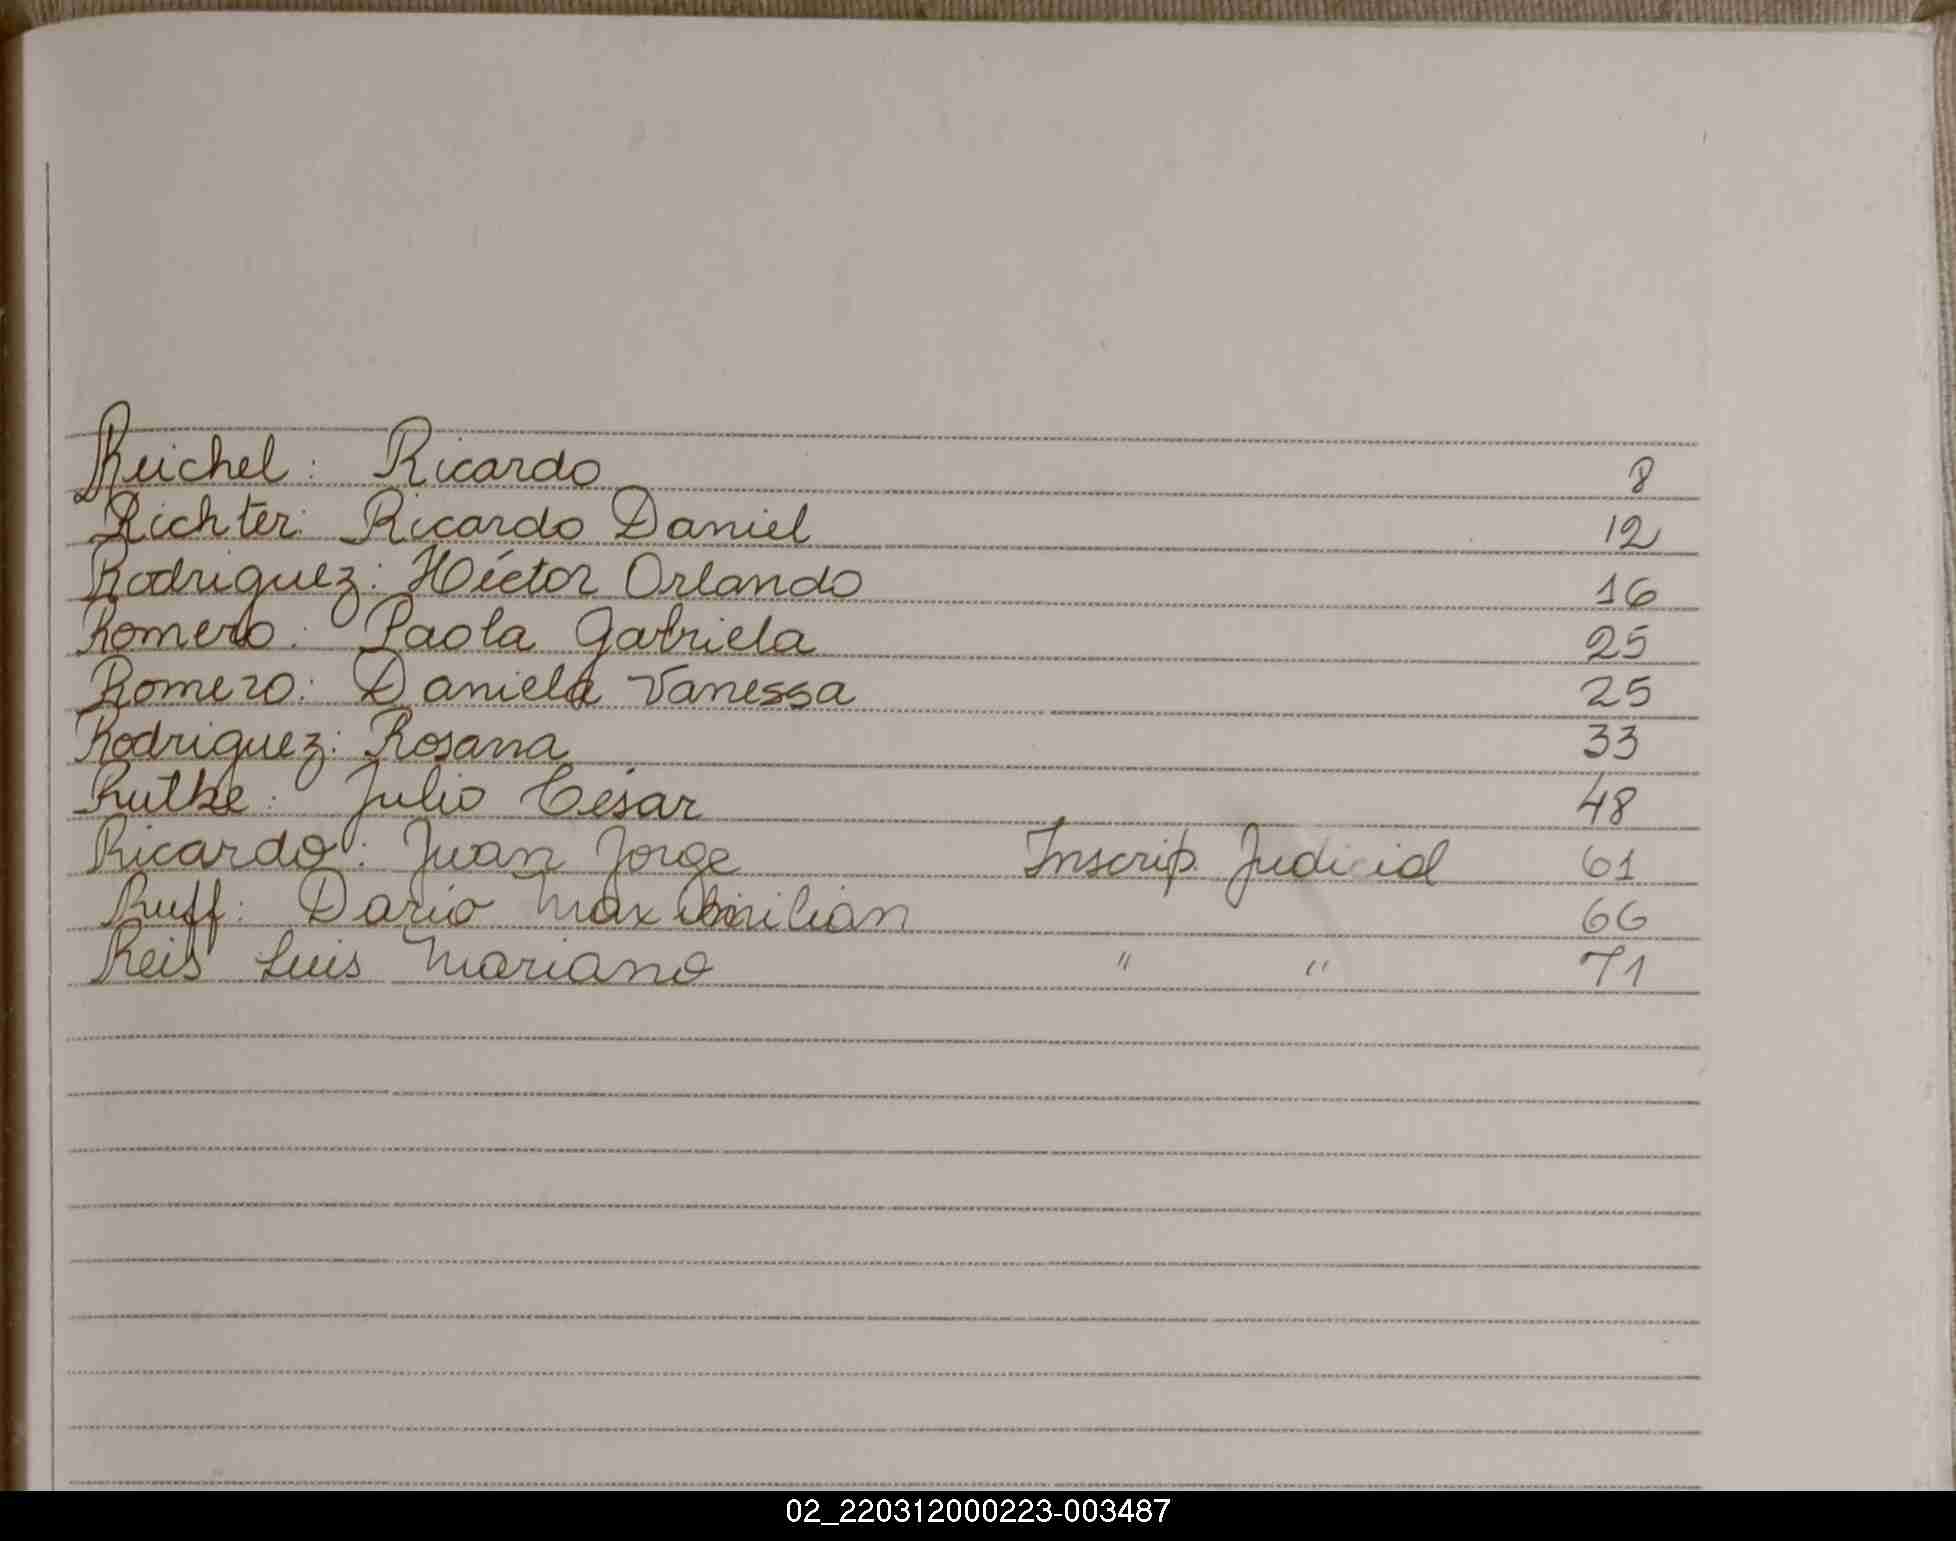 Reichel: Ricardo 8
Richter: Ricardo Daniel 12
Rodriguez: Héctor Orlando 16
Romero: Paola Gabriela 25
Romero: Daniela Vanessa 25
Rodriguez: Rosana 33
Rutke: Julio César 48
Ricardo: Juan Jorge Inscrip. Judicial 61
Ruff: Dario Maximilian 66
Reis Luis Mariano " " 71
02_220312000223-003487